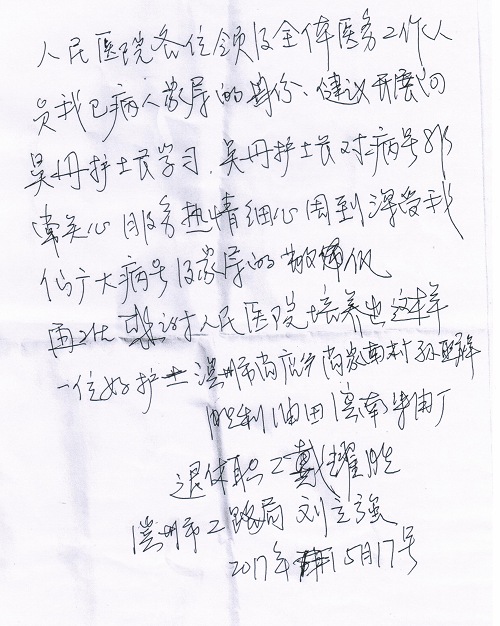 人民医院各位领及全体医务工作人
员我已病人家属的身份、健议开展向
吴丹护士长学习、吴丹护士长对病号非
常关心 服务热情细心周到深受我
们广大病号及家属的敬佩
再次 感谢人民医院培养出这样
一位好护士 滨州市尚店乡尚家南村孙
胜利油田滨南采油厂
退休职工戴耀胜
滨州市公路局 刘立强
2017年 5月17号